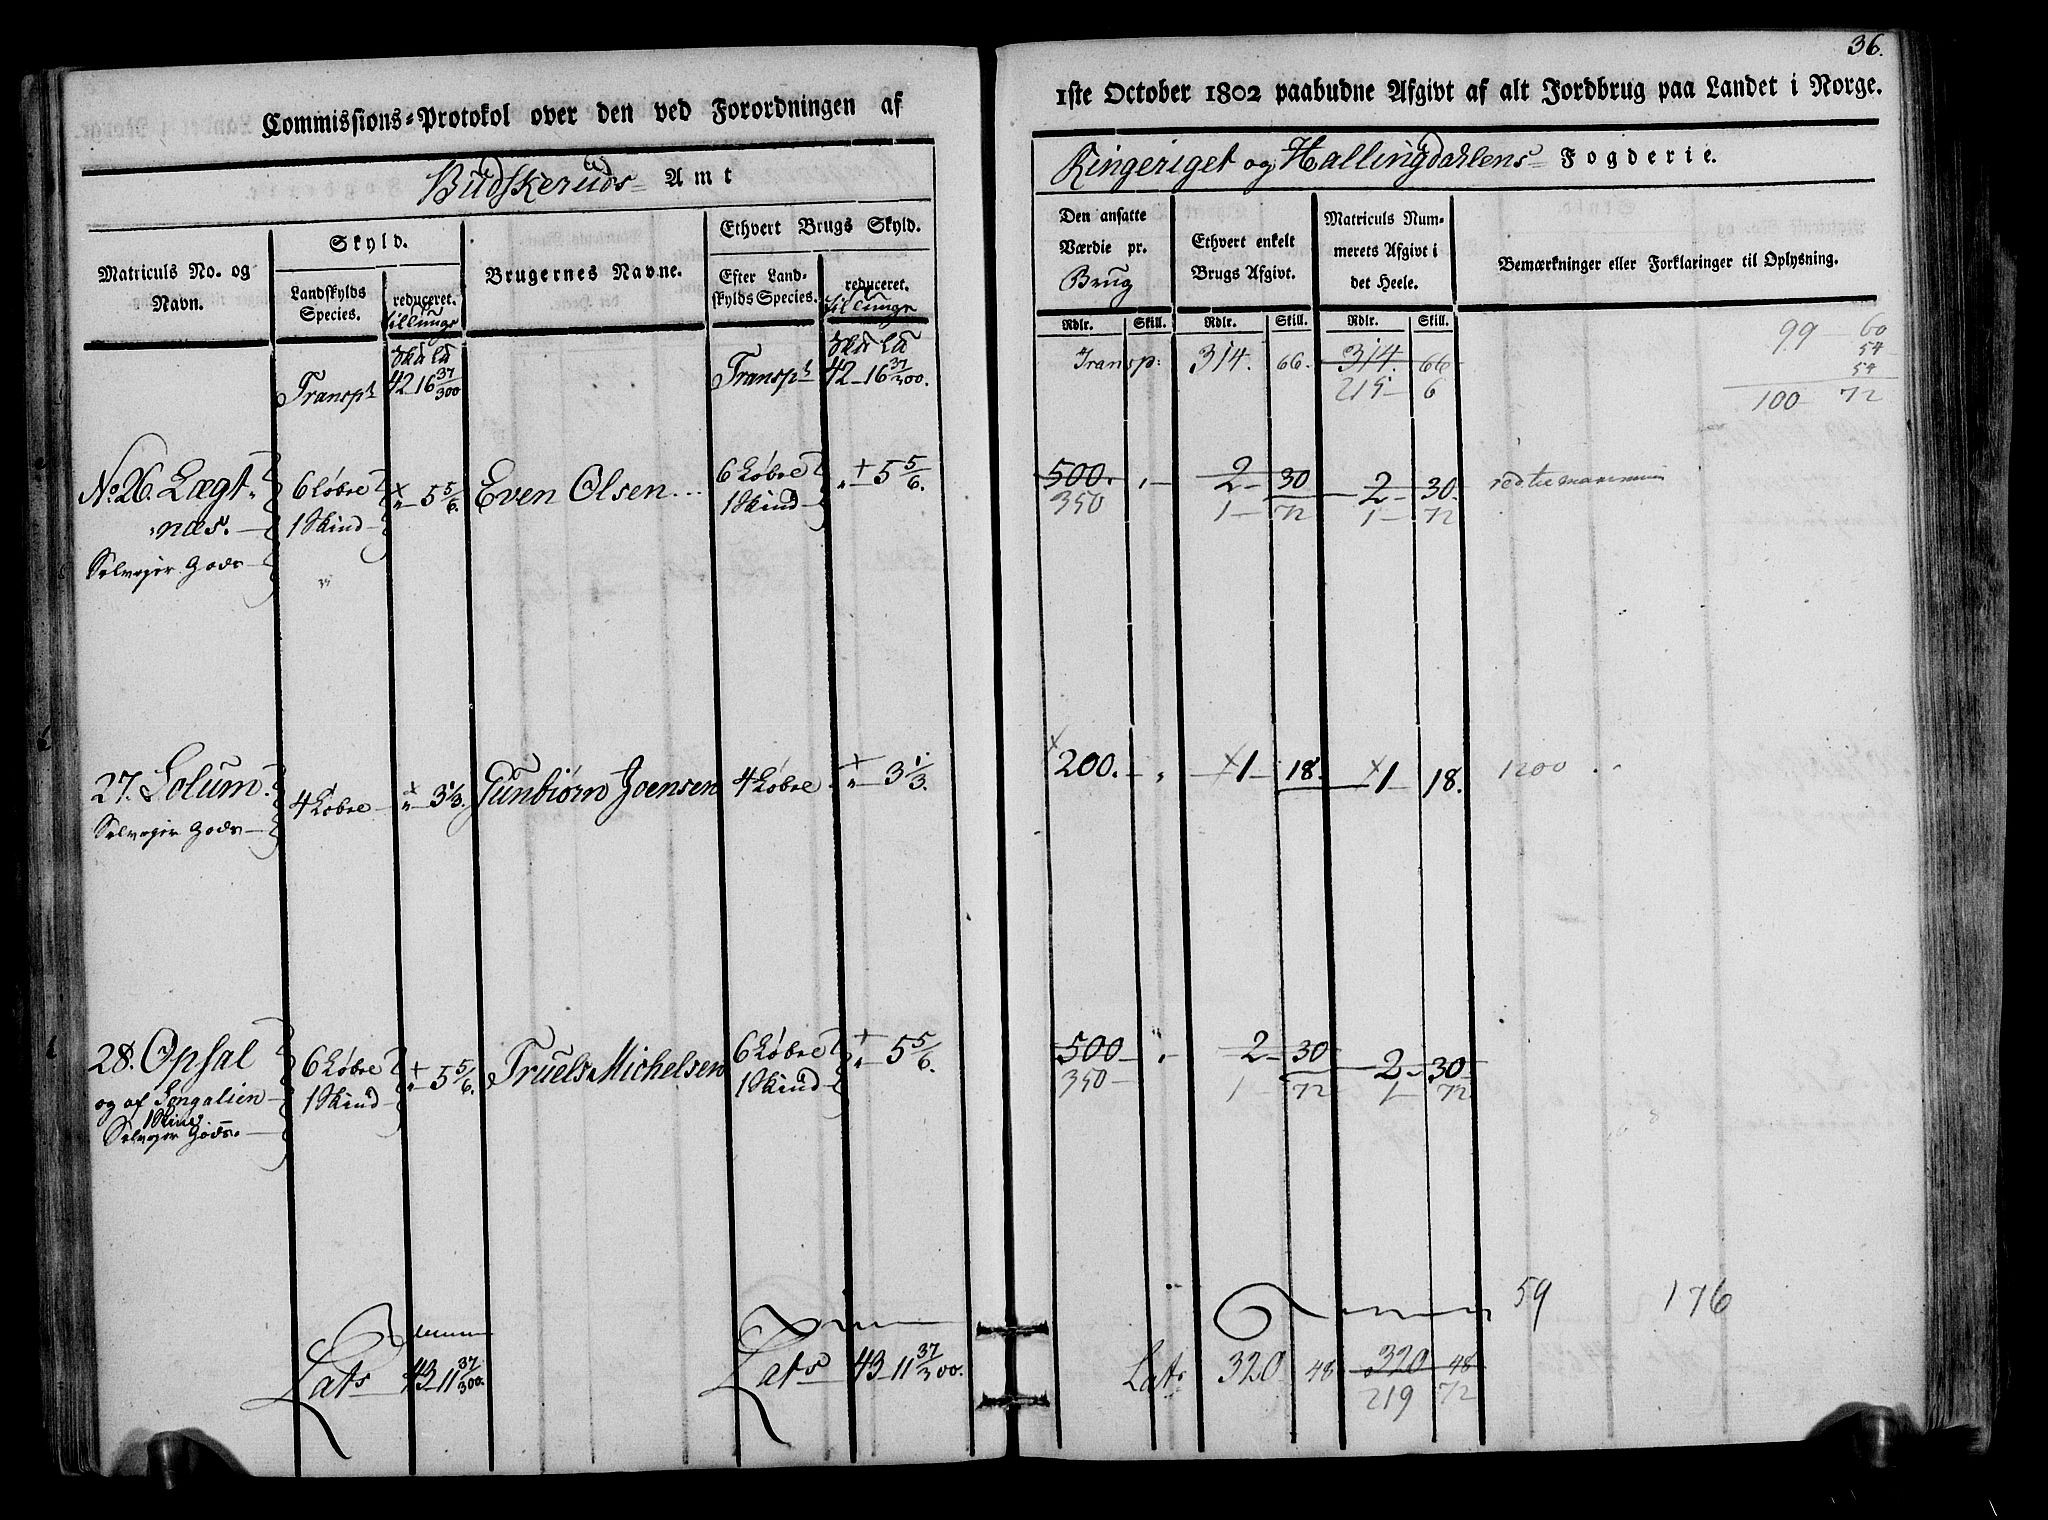 36.
Commissions-Protokol over den ved Forordningen af
1ste October 1802 paabudne Afgivt af alt Jordbrug paa Landet i Norge.
Budskeruds Amt
Ringeriget og Hallingdahlens Fogderie.
Matriculs No. og Navn.
Skyld.
Landskylds Species.
reduceret.
Brugernes Navne.
Ethvert Brugs Skyld.
Efter Landskylds Species.
reduceret.
Den ansatte Værdie pr. Brug
Ethvert enkelt Brugs Afgivt.
Matriculs Nummerets Afgivt i det Heele.
Bemærkninger eller Forklaringer til Oplysning.
Rdlr. Skill. Rdlr. Skill. Rdlr. Skill.
Transpt 42 16 37/300 Transpt 42 16 37/300. Transp: 314. 66. 314. 66
215 6
99 60
54
54
100 72
No 26. Lægt 6 Løbse 5 5/6. Even Olsen 6 Løbse 5 5/6. 500. 2 30 2 30.
næs. 1 Skind 1 Skind 350 1 72 1 72
Selveyer Gods
27. Solum. 4 Løbse 3 1/3. Gunbiørn Joensen 4 Løbse 3 1/3. 200. 1 18. 1 18. 1200
Selveyer Gods
28. Opsal 6 Løbse 5 5/6. Truels Michelsen 6 Løbse 5 5/6. 500 2 30 2 30
og af 1 Skind 1 Skind 350 1 72 1 72
1 Skind
Selveyer Gods.
59 176
Lats 43 11 37/300. Lats 43 11 37/300. Lats 320 48 320 48
219 72